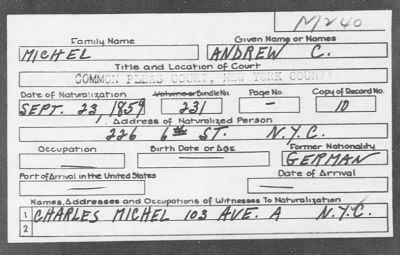 M240
Family Name Given Name or Names
MICHEL ANDREW C.
Title and Location of Court
COMMON PLEAS COURT, NEW YORK COUNTY
Date of Naturalization Volume or Bundle No. Page No. Copy of Record No.
SEPT. 23, 1859 231 - 10
Address of Naturalized Person
226 6th ST. N.Y.C.
Occupation Birth Date or Age Former Nationality
— — GERMAN
Port of Arrival in the United States Date of Arrival
— —
Names, Addresses and Occupations of Witnesses To Naturalization
1 CHARLES MICHEL 103 AVE. A N.Y.C.
2